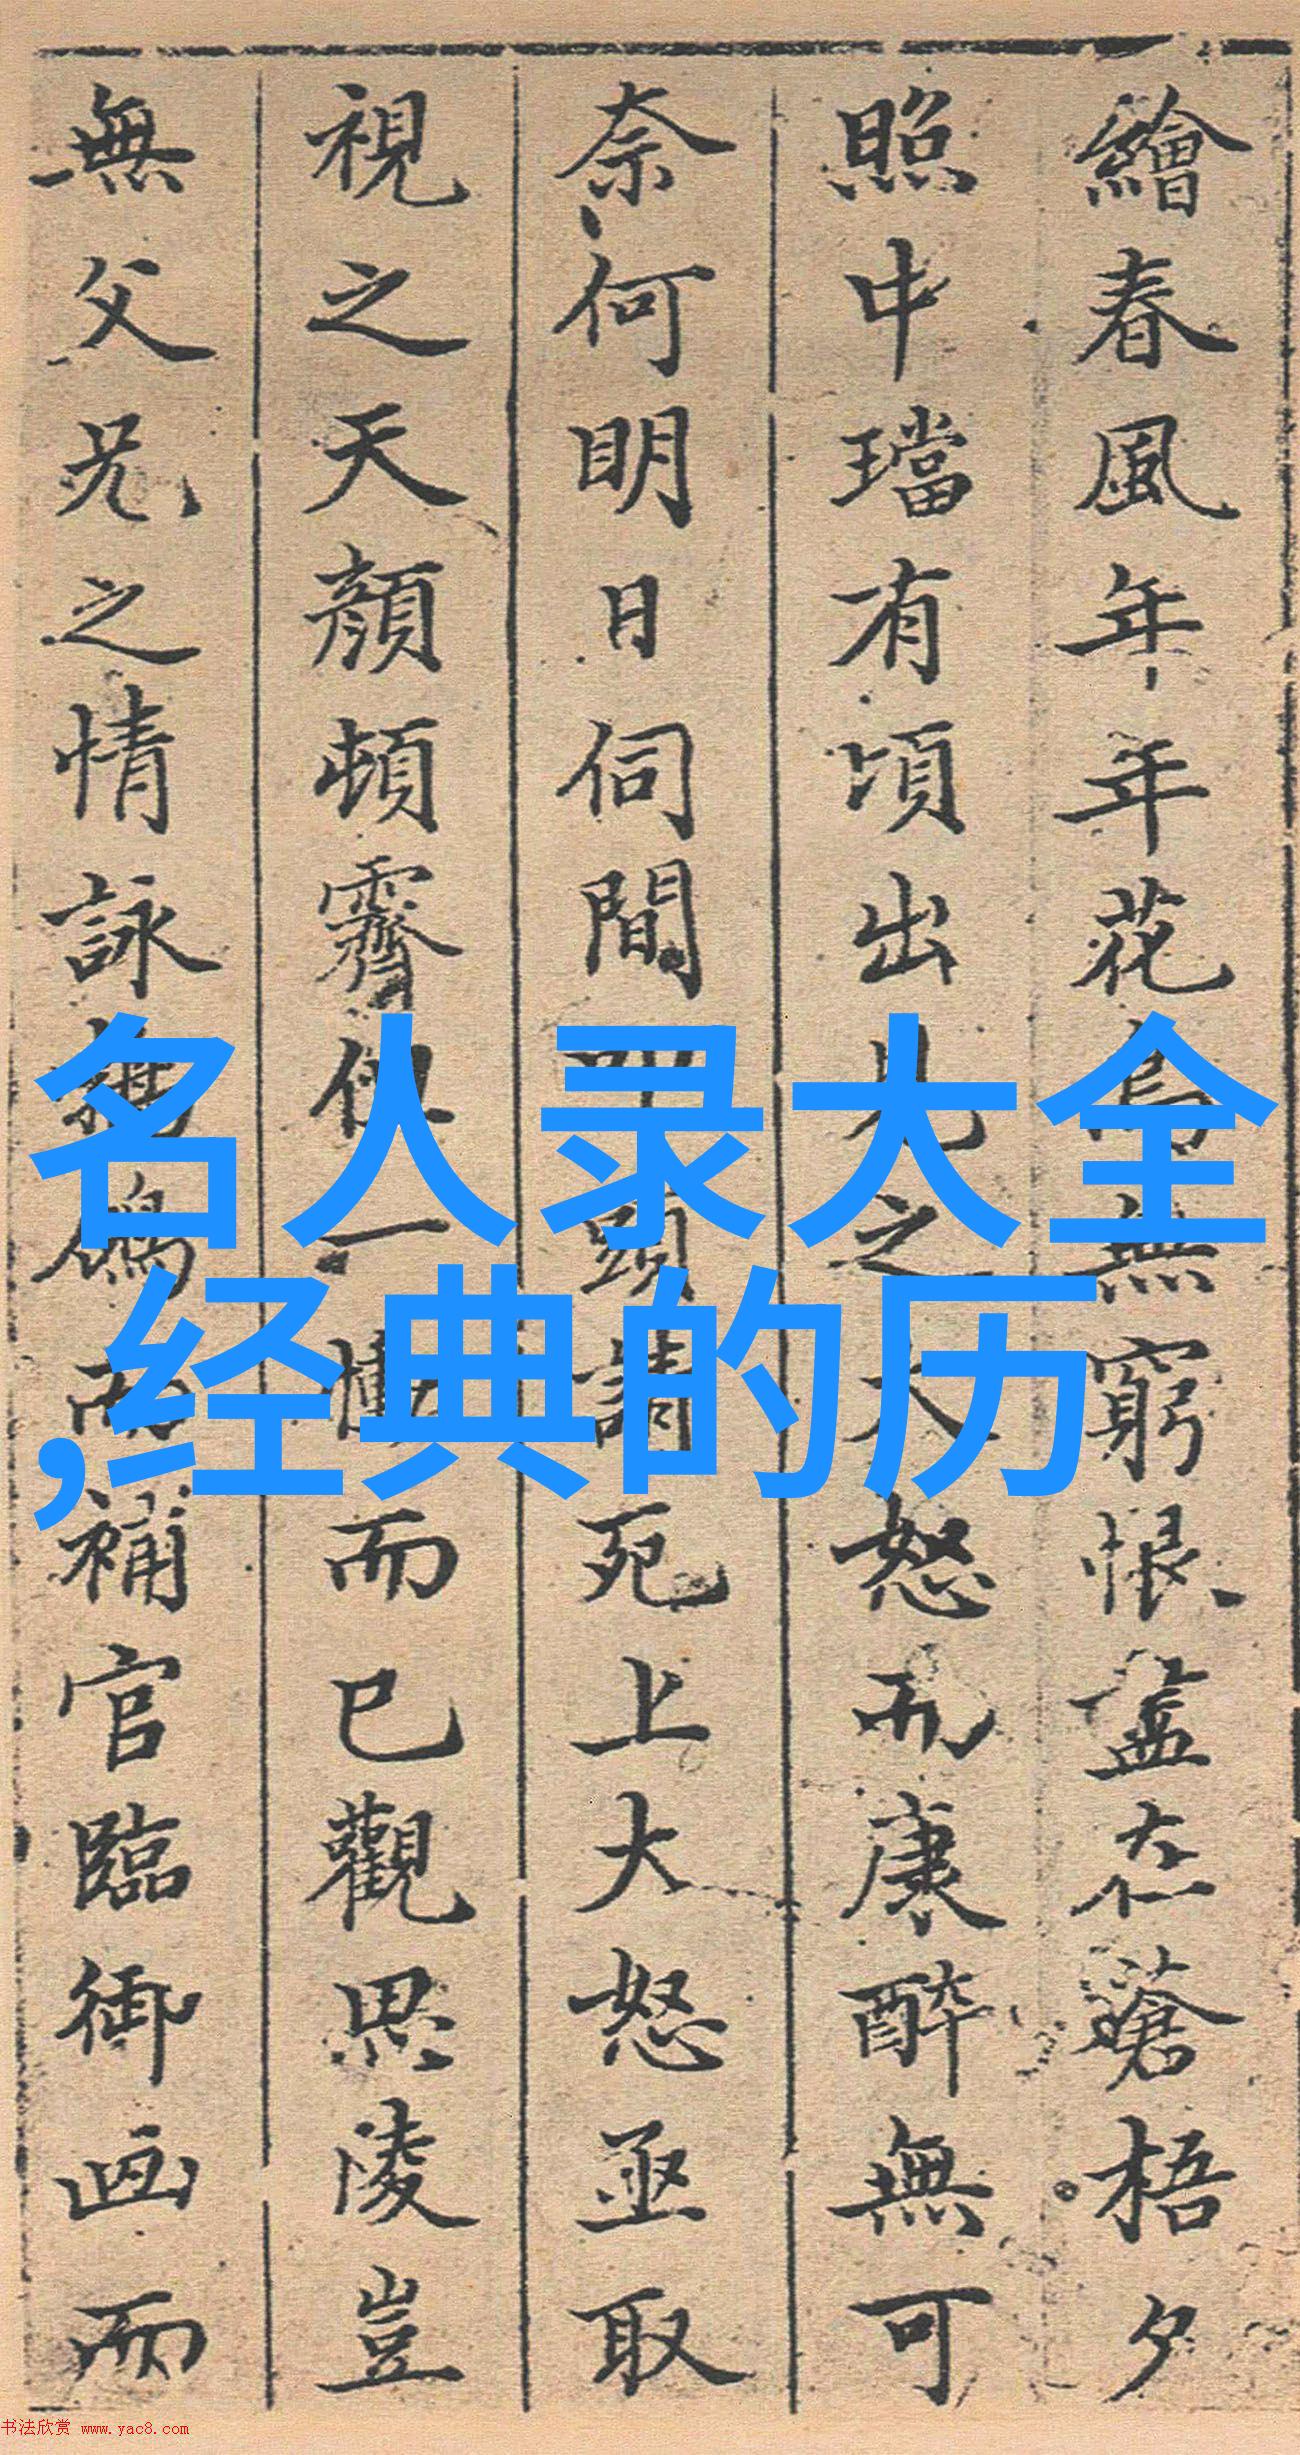 繪春風年年花鳥無窮恨盡在蒼梧夕
照中璫有頃出見之大怒而康醉無可
奈何明日伺間叩頭請死上大怒亟取
視之天顏頓霽但一慟而已觀思陵豈
無父兄之情詠鶺鴒而補官臨御畫而
名人录大全
,经典的历
书法欣赏 www.yac8.com